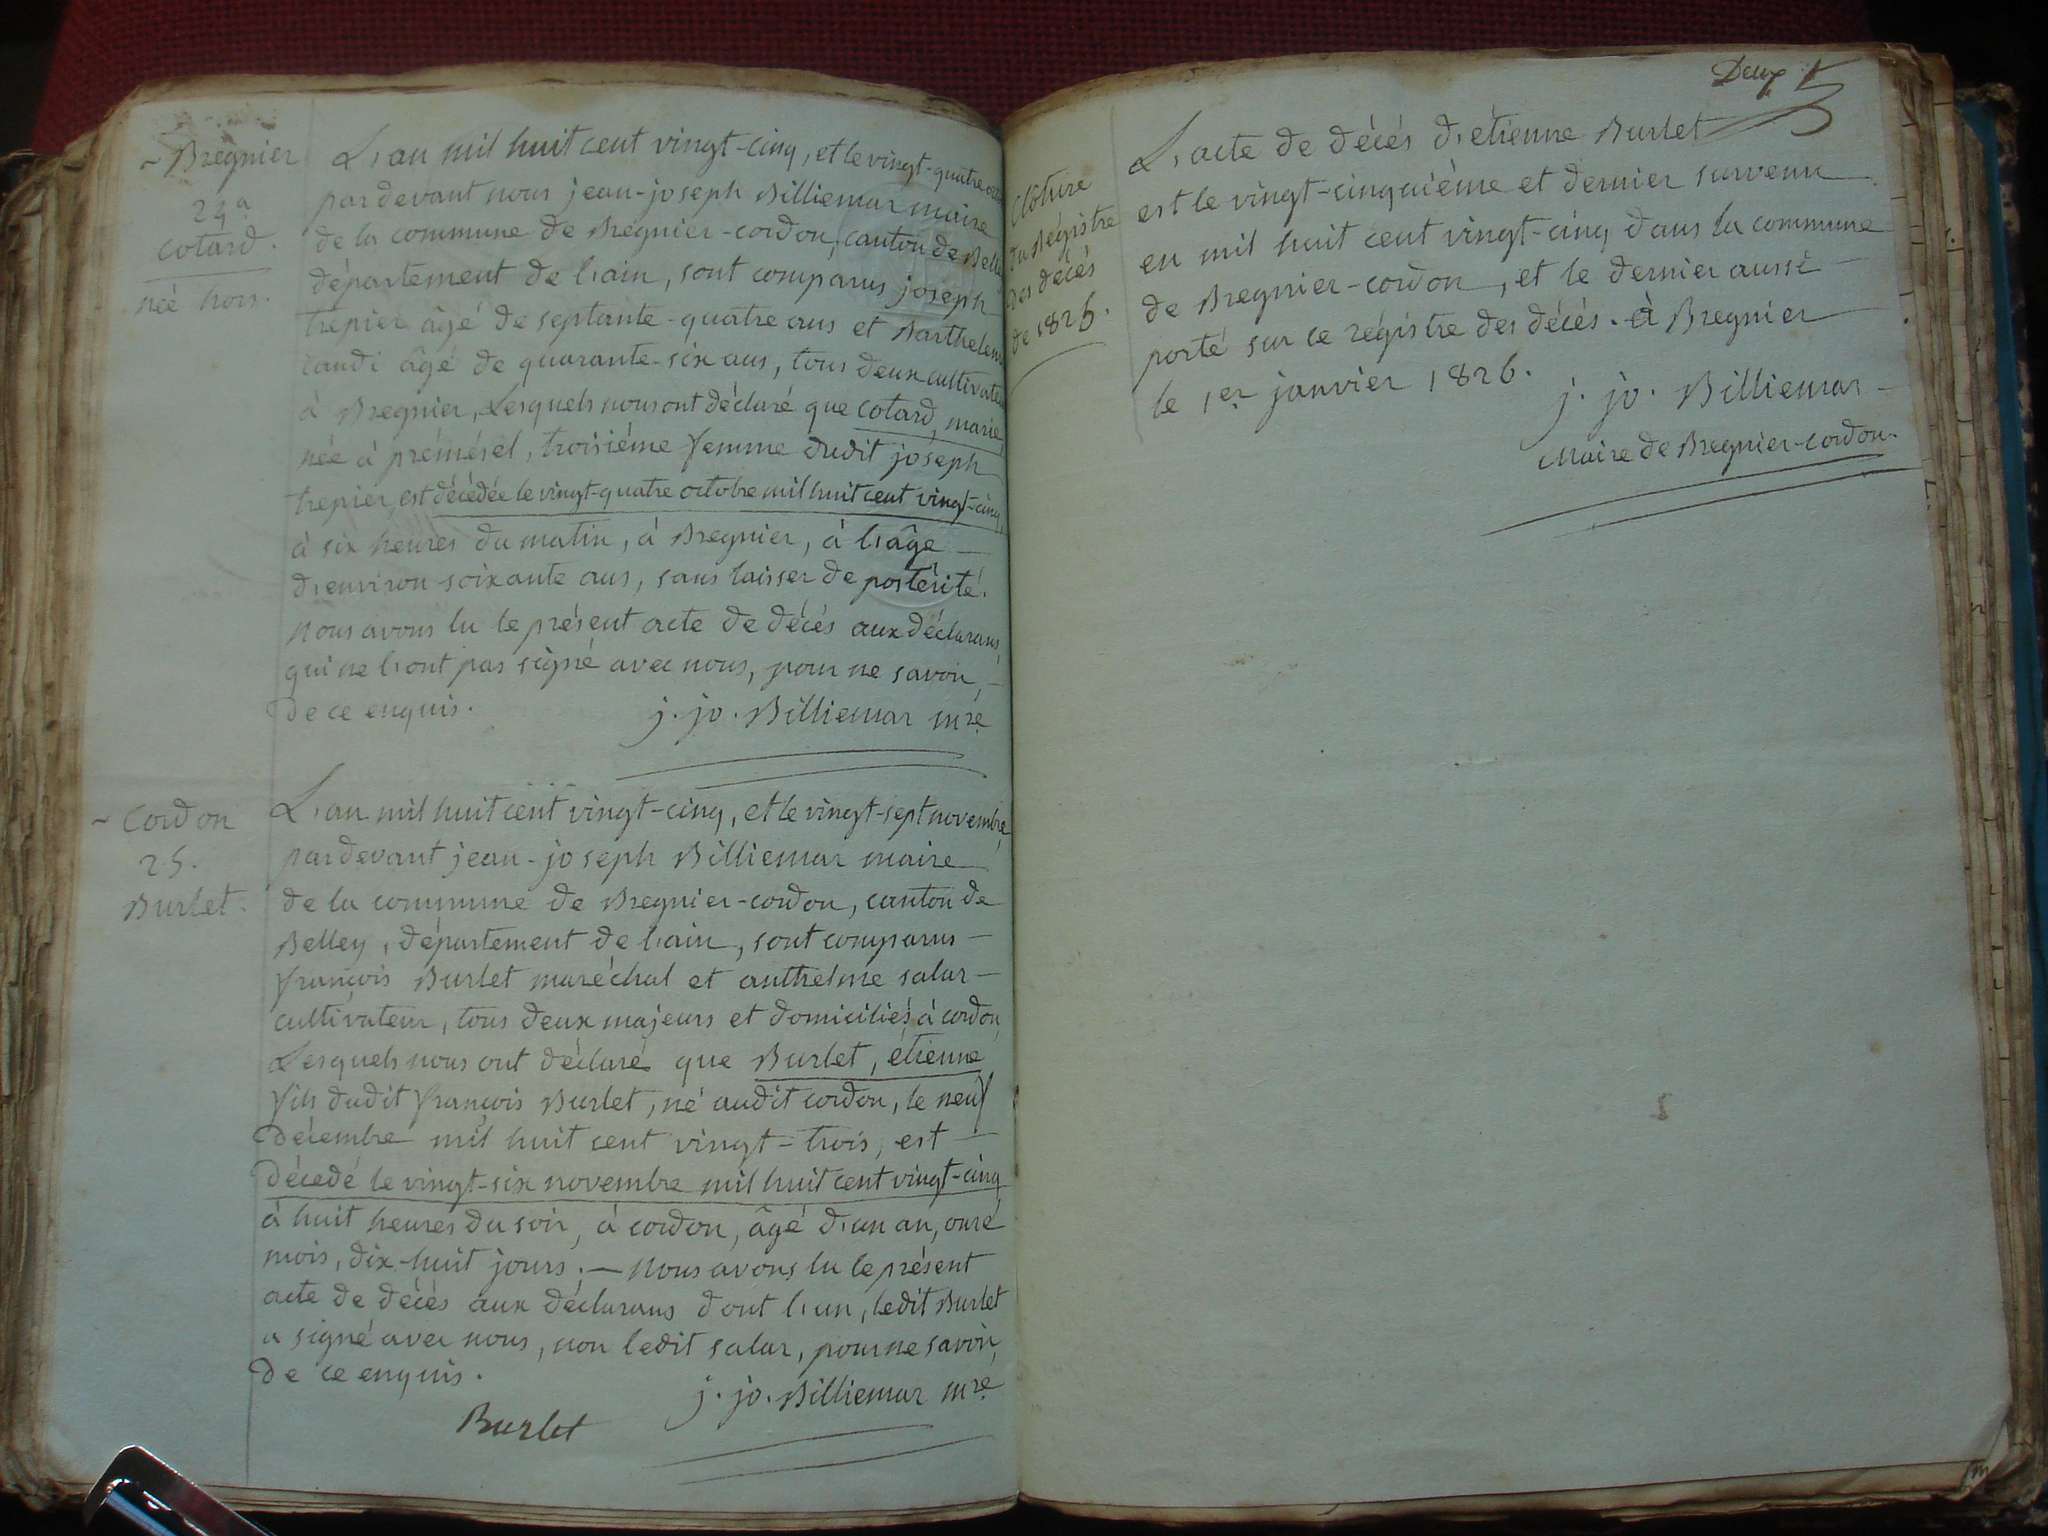 ~ Bregnier
24a
Cotard.
née hors.
L'an mil huit cent vingt-cinq, et le vingt-quatre
par devant nous jean-joseph Billiemar maire
de la commune de Bregnier-cordon, canton de Belley
département de l'ain, sont comparus joseph
trepier âgé de septante-quatre ans et Barthelemi
âgé de quarante-six ans, tous deux cultivateurs
à Bregnier, Lesquels nous ont déclaré que cotard, marie,
née à prémésel, troisième femme dudit joseph
trepier, est décédée le vingt-quatre octobre mil huit cent vingt-cinq,
à six heures du matin, à Bregnier, à l'âge —
d'environ soixante ans, sans laisser de postérité.
Nous avons lu le présent acte de décés aux déclarans,
qui ne l'ont pas signé avec nous, pour ne savoir, —
de ce enquis. j. jo. Billiemar mre
~ Cordon
25.
Burlet.
L'an mil huit cent vingt-cinq, et le vingt-sept novembre,
par devant jean-joseph Billiemar maire
de la commune de Bregnier-cordon, canton de
Belley, département de l'ain, sont comparus —
françois Burlet maréchal et anthelme salar —
cultivateur, tous deux majeurs et domiciliés à cordon,
Lesquels nous ont déclaré que Burlet, étienne
fils dudit françois Burlet, né audit cordon, le neuf
décembre mil huit cent vingt-trois, est —
décedé le vingt-six novembre mil huit cent vingt-cinq
à huit heures du soir, à cordon, âgé d'un an, onze
mois, dix-huit jours. — Nous avons lu le présent
acte de décés aux déclarans dont l'un, ledit Burlet
a signé avec nous, non ledit salar, pour ne savoir,
de ce enquis.
j. jo. Billiemar mre
Burlet
Deux
clôture
du Régistre
des décés
de 1825.
L'acte de décés d'étienne Burlet
est le vingt-cinquième et dernier survenu
en mil huit cent vingt-cinq dans la commune
de Bregnier-cordon, et le dernier aussi —
porté sur ce régistre des décés. à Bregnier
le 1er janvier 1826.
j. jo. Billiemar —
Maire de Bregnier-cordon.